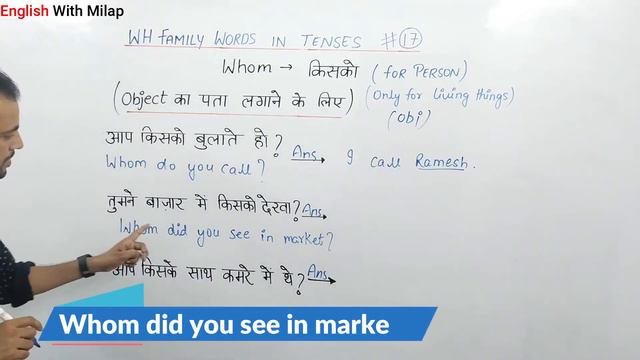 English With Milap
WH FAMILY WORDS IN TENSES #17
Whom → किसको (FOR PERSON)
(Object का पता लगाने के लिए) (Only for living things)
(Obj)
आप किसको बुलाते हो? Ans I call Ramesh.
Whom do you call?
तुमने बाज़ार में किसको देखा? Ans
Whom did you see in market?
आप किसके साथ कमरे में थे? Ans
Whom did you see in marke